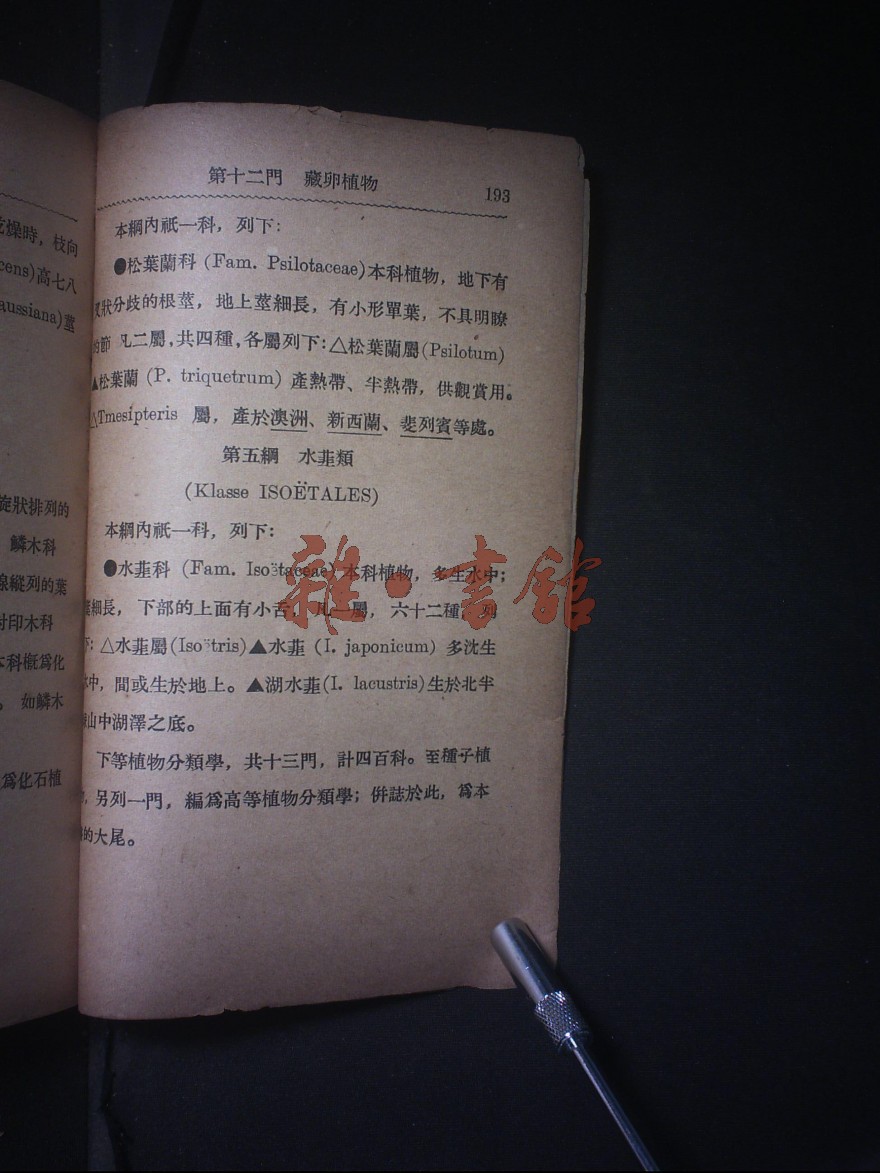 第十二門 藏卵植物
193
本綱內祇一科，列下：
●松葉蘭科 (Fam. Psilotaceae)本科植物，地下有
狀分歧的根莖，地上莖細長，有小形單葉，不具明瞭
的節 凡二屬，共四種，各屬列下：△松葉蘭屬(Psilotum)
▲松葉蘭 (P. triquetrum) 產熱帶、半熱帶，供觀賞用。
△Tmesipteris 屬，產於澳洲、新西蘭、斐列賓等處。
第五綱 水韮類
(Klasse ISOËTALES)
本綱內祇一科，列下：
●水韮科 (Fam. Isoëtaceae) 本科植物，多生水中；
細長，下部的上面有小舌，凡一屬，六十二種，列
下：△水韮屬(Isoëtris)▲水韮 (I. japonicum) 多沈生
水中，間或生於地上。▲湖水韮(I. lacustris)生於北半
山中湖澤之底。
下等植物分類學，共十三門，計四百科。至種子植
，另列一門，編爲高等植物分類學；併誌於此，爲本
的大尾。
雜·書館
燥時，枝向
cens)高七八
aussiana)莖
旋狀排列的
鱗木科
線縱列的葉
封印木科
本科槪爲化
。如鱗木
爲化石植